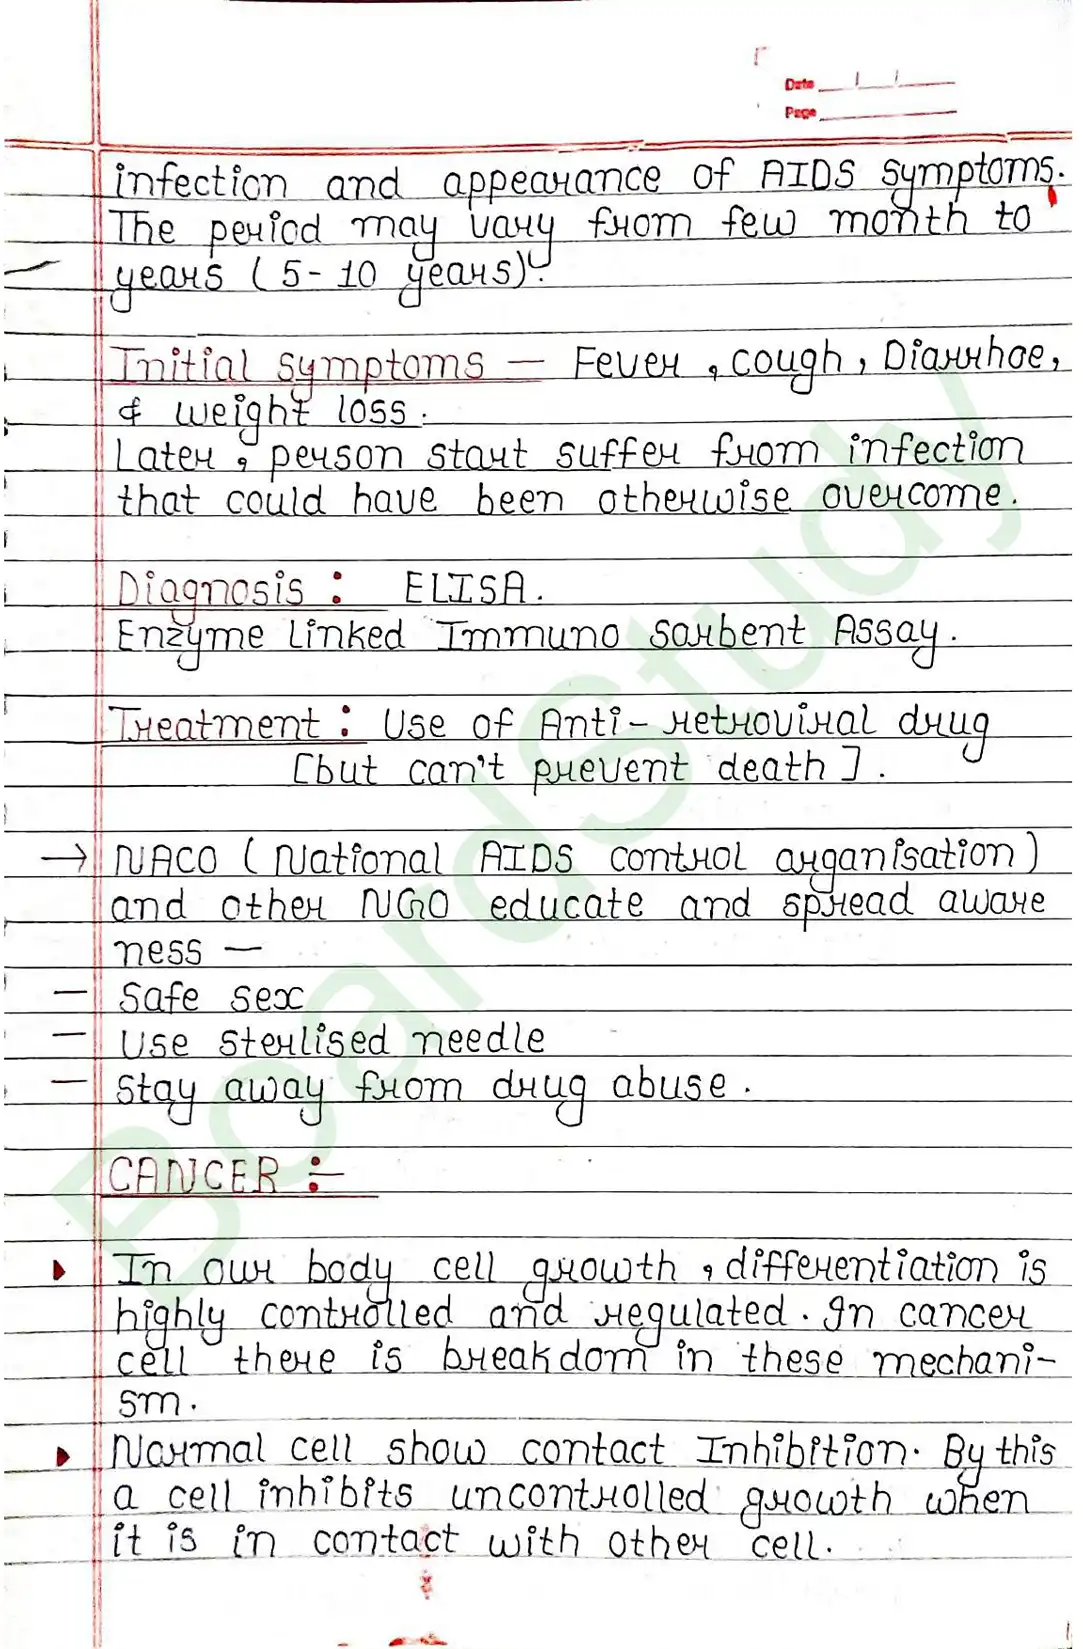 Date
Page
infection and appearance of AIDS symptoms.
The period may vary from few month to
years (5-10 years).
Initial symptoms — Fever, cough, Diarrhoe,
& weight loss.
Later, person start suffer from infection
that could have been otherwise overcome.
Diagnosis : ELISA.
Enzyme Linked Immuno sorbent Assay.
Treatment : Use of Anti-retroviral drug
[but can't prevent death].
→ NACO (National AIDS control organisation)
and other NGO educate and spread aware
ness —
— Safe sex
— Use sterlised needle
— Stay away from drug abuse.
CANCER :-
In our body cell growth, differentiation is
highly controlled and regulated. In cancer
cell there is breakdom in these mechani-
sm.
Normal cell show contact Inhibition. By this
a cell inhibits uncontrolled growth when
it is in contact with other cell.
BoardStudy